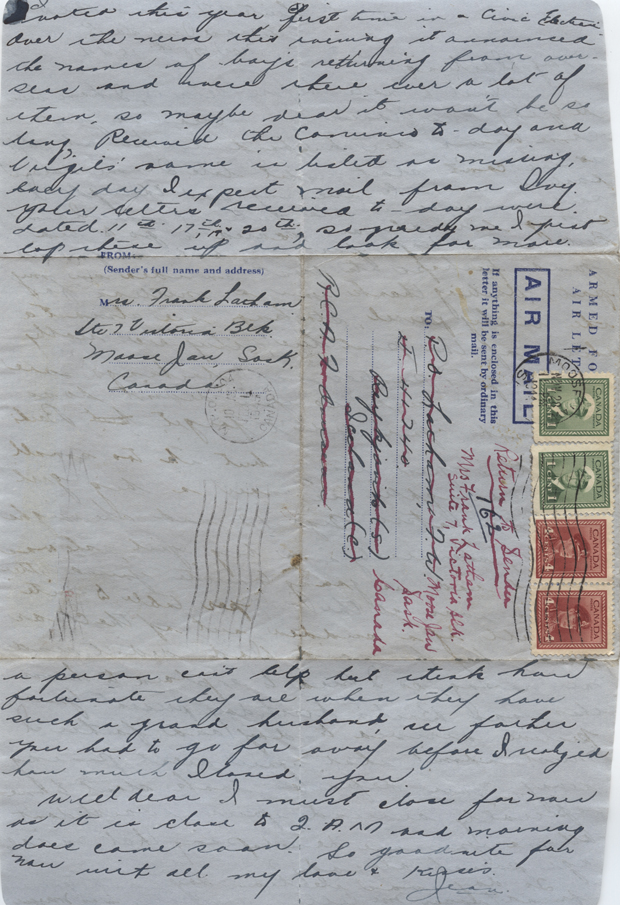 I voted this year first time in a Civic Election
Over the news this evening it announced
the names of boys returning from over-
seas and were there ever a lot of
them, so maybe dear it won't be so
long. Received the to-day and
Virgil's name is listed as missing.
Every day I expect mail from Ivy
your letters received to-day were
dated 11th 17th, & 20th, so you see me I just
lap these up and look for more.
FROM:
(Sender's full name and address)
Mrs. Frank Latham
Ste 7 Victoria Blk
Moose Jaw Sask,
Canada
ARMED FO
AIR LET
AIR MAIL
If anything is enclosed in this
letter it will be sent by ordinary
mail.
TO:
Latham F W
J 4240
Reykjavik (s)
Iceland (C)
R.C.A.F. Overseas
Return to Sender
762
Mrs Frank Latham
Suite 7, Victoria Blk.
Moose Jaw
Sask.
Canada
MOOSE JAW
CANADA
1 CENT 1
CANADA
1 CENT 1
CANADA
4 CENTS 4
CANADA
4 CENTS 4
a person can't help but think how
fortunate they are when they have
such a grand husband,
you had to go far away before I realized
how much I loved you
Well dear I must close for now
as it is close to 2. A.M and morning
does come soon. So goodnite for
now with all my love & Kisses.
Jean.